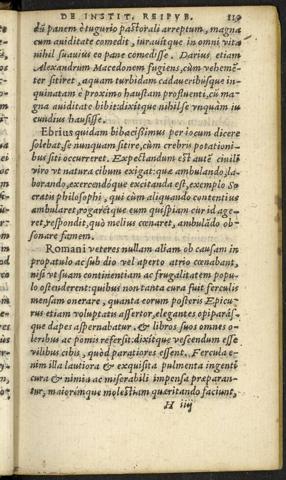 DE INSTIT. REIPVB. 119
dũ panem è tugurio pastorali arreptum, magna
cum auiditate comedit, iurauitque in omni vita
nihil suauius eo pane comedisse. Darius etiam
Alexandrum Macedonem fugiens, cùm vehemẽ-
ter sitiret, aquam turbidam cadaueribusque in-
quinatam è proximo haustam profluenti, cũ ma-
gna auiditate bibit: dixitque nihil se vnquàm iu
cundius hausisse.
Ebrius quidam bibacissimus per iocum dicere
solebat, se nunquam sitire, cùm crebris potationi-
bus siti occurreret. Expectandum est autẽ ciuili
viro vt natura cibum exigat: que ambulando, la-
borando, exercendóque excitanda est, exemplo So
cratis philosophi, qui cùm aliquando contentius
ambularet, rogarétque eum quispiam cur id age-
ret, respondit, quò melius cœnaret, ambulãdo ob-
sonare famem.
Romani veteres nullam aliam ob causam in
propatulo ac sub dio vel aperto atrio cœnabant,
nisi vt suam continentiam ac frugalitatem popu-
lo ostenderent: quibus non tanta cura fuit ferculis
mensam onerare, quanta eorum posteris Epicu-
rus etiam voluptatis assertor, elegantes opiparás-
que dapes aspernabatur. & libros suos omnes o-
leribus ac pomis refersit: dixitque vescendum esse
vilibus cibis, quòd paratiores essent. Fercula e-
nim illa lautiora & exquisita pulmenta ingenti
cura & nimia ac miserabili impensa præparan-
tur, maiorémque molestiam quæritando faciunt,
H iiij